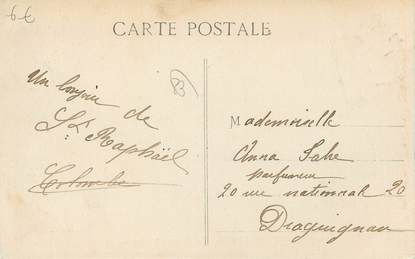 6€
CARTE POSTALE
Un bonjour de
St Raphaël
Colombe
Mademoiselle
Anna
parfumeur
20 rue nationale 20
Draguignan